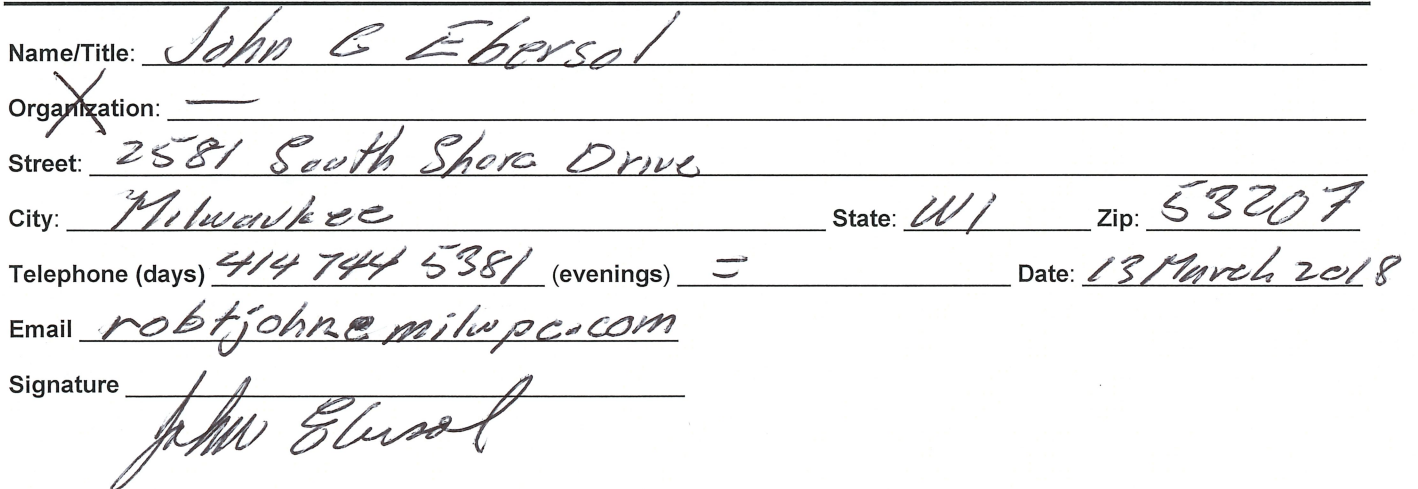 Name/Title: John G Ebersol
Organization: —
Street: 2581 South Shore Drive
City: Milwaukee State: WI Zip: 53207
Telephone (days) 414 744 5381 (evenings) = Date: 13 March 2018
Email robtjohn@milwpc.com
Signature
John Ebersol